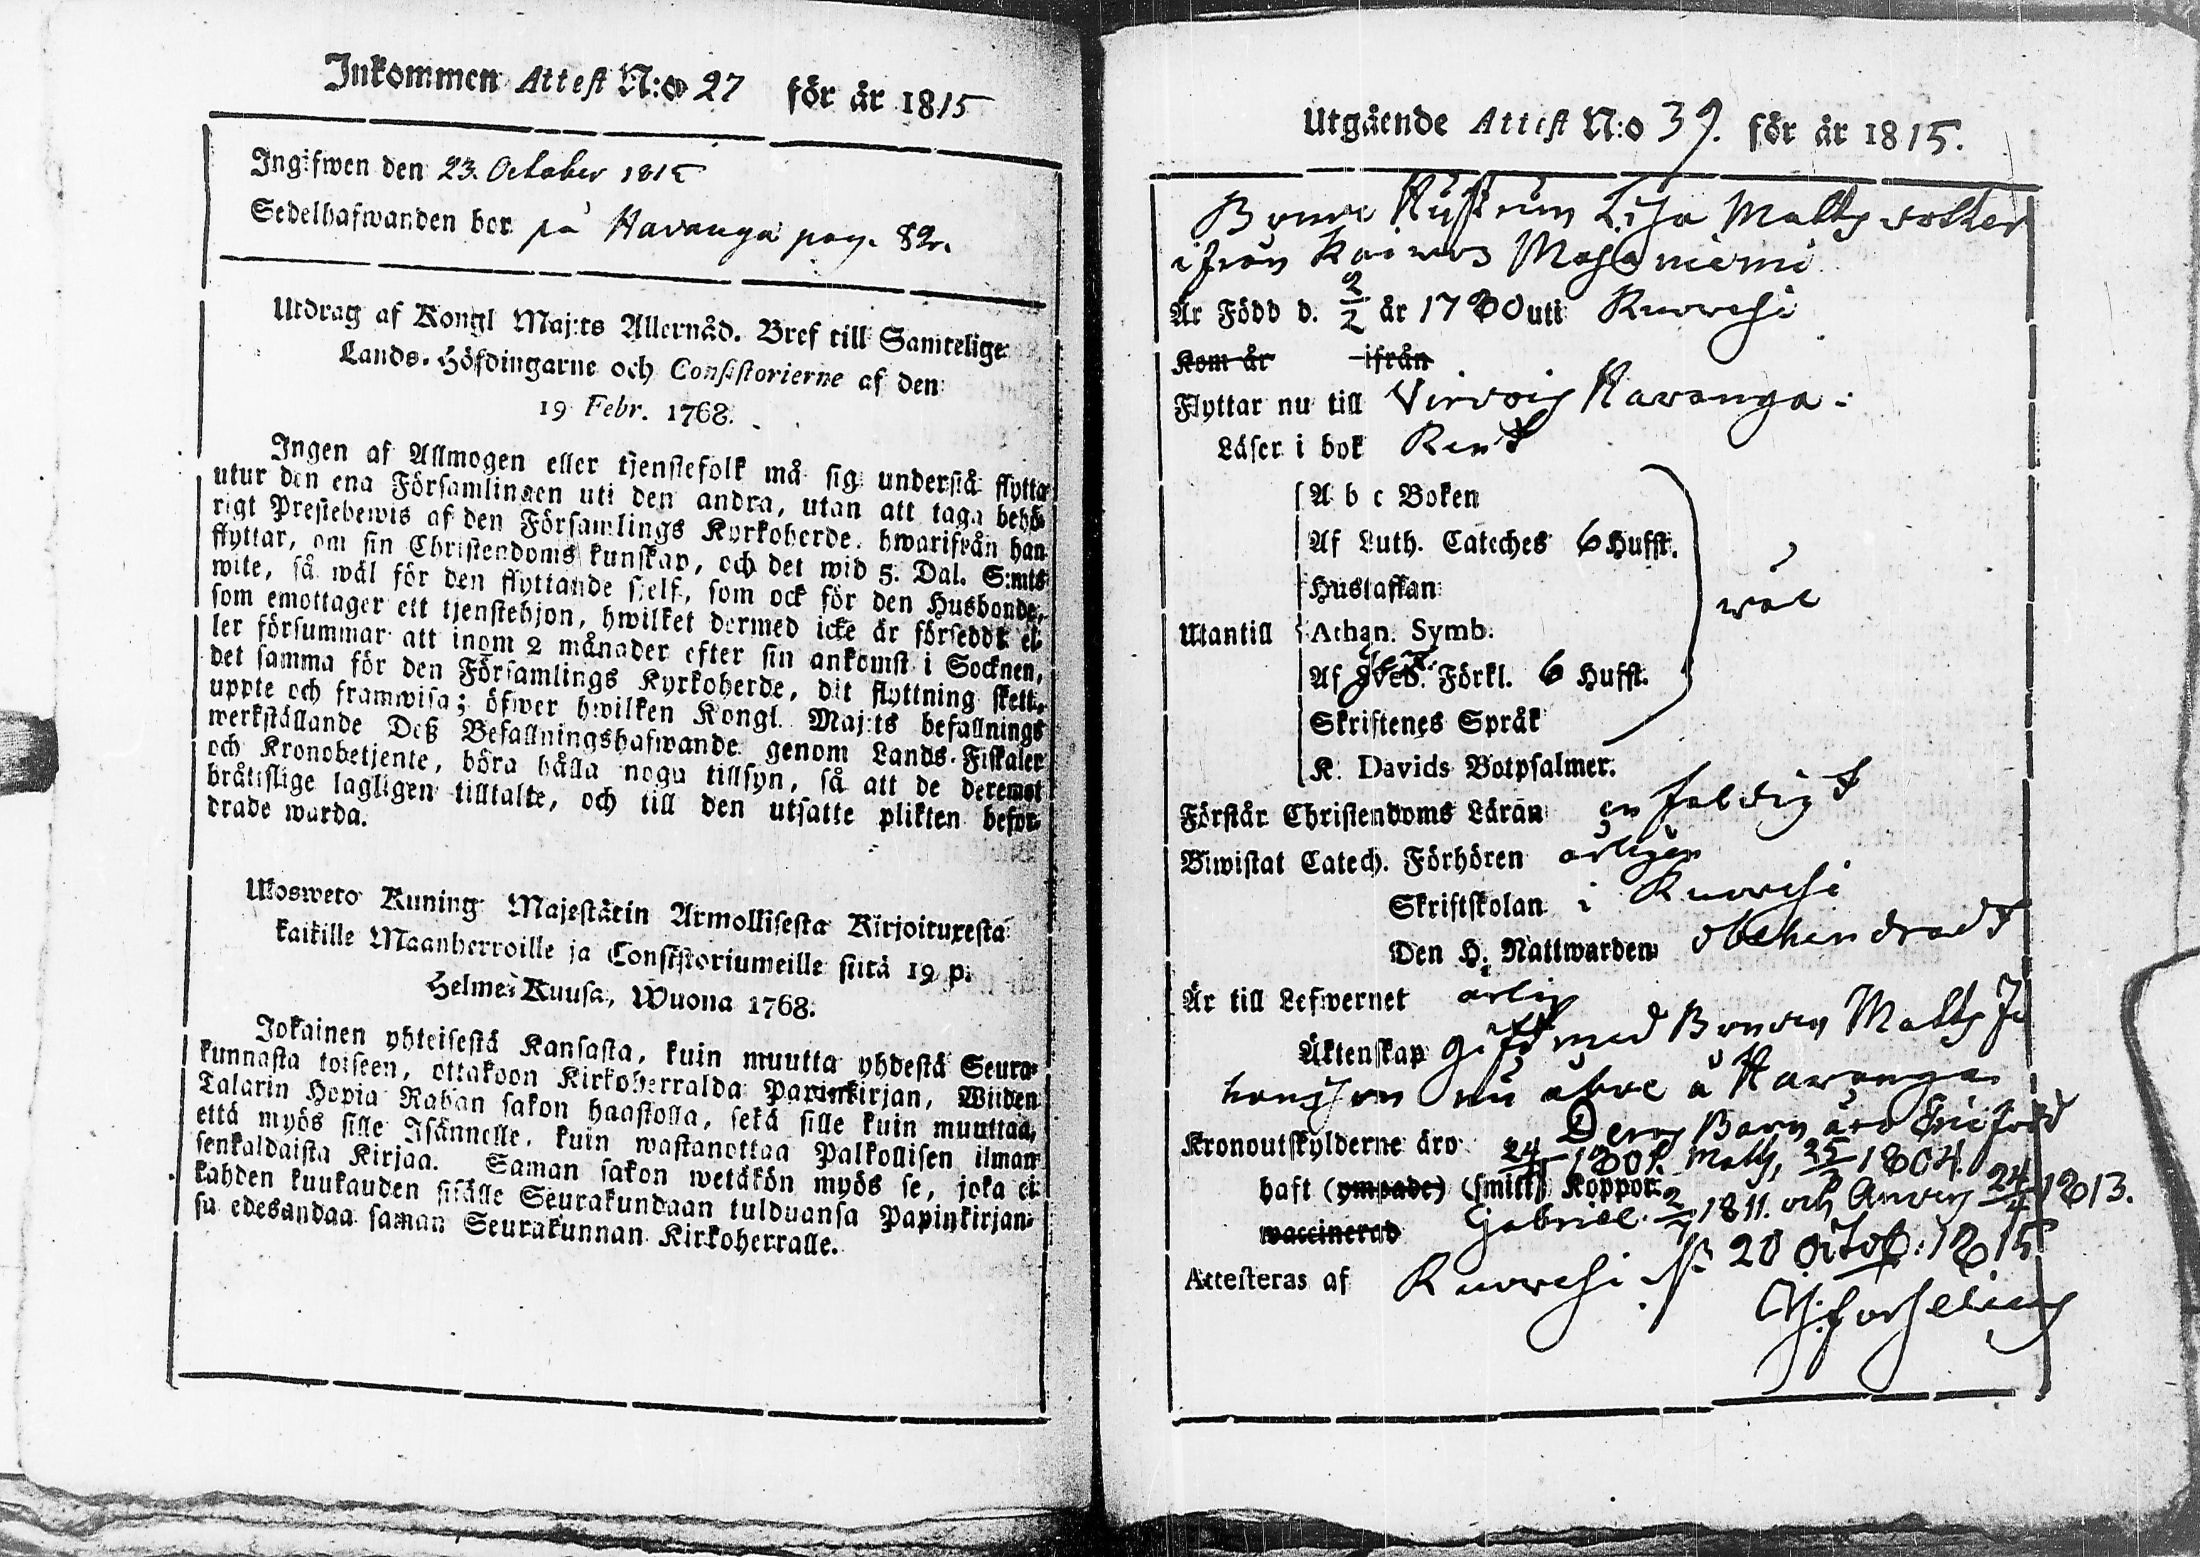 Inkommen Attest N:o 27 för år 1815
Ingifwen den 23. October 1815
Sedelhafwanden bor på Havanga pag. 82.
Utdrag af Kongl Maj:ts Allernåd. Bref till Samtelige
Lands-Höfdingarne och Consistorierne af den
19 Febr. 1768.
Ingen af Allmogen eller tjenstefolk må sig understå flytta
utur den ena Församlingen uti den andra, utan att taga behö-
rigt Prestebewis af den Församlings Kyrkoherde, hwarifrån han
flyttar, om sin Christendoms kunskap, och det wid 5. Dal. S:mts
wite, så wäl för den flyttande sjelf, som ock för den Husbonde,
som emottager ett tjenstehjon, hwilket dermed icke är försedd: el-
ler försummar att inom 2 månader efter sin ankomst i Socknen,
det samma för den Församlings Kyrkoherde, dit flyttning skett,
uppte och framwisa; öfwer hwilken Kongl. Maj:ts befallnings
werkställande Deß Befallningshafwande genom Lands-Fiskaler
och Kronobetjente, böra hålla noga tillsyn, så att de deremot
bråttslige lagligen tilltalte, och till den utsatte plikten befor-
drade warda.
Ulosweto Kuning Majestätin Armollisesta Kirjoituxesta
kaikille Maanherroille ja Consistoriumeille siitä 19 p.
Helme-Kuusa, Wuona 1768.
Jokainen yhteisestä Kansasta, kuin muutta yhdestä Seura-
kunnasta toiseen, ottakoon Kirkoherralda Papinkirjan, Wiiden
Talarin Hopia Rahan sakon haastolla, sekä sille kuin muuttaa,
että myös sille Isännelle, kuin wastanottaa Palkollisen ilman
senkaldaista Kirjaa. Saman sakon wetäkön myös se, joka ei
kahden kuukauden sisälle Seurakundaan tulduansa Papinkirjan-
sa edesandaa saman Seurakunnan Kirkoherralle.
Utgående Attest N:o 39. för år 1815.
Bonde Hustrun Lisa Matts dotter
ifrån Majaniemi
Är Född d. 2/2 år 1780 uti Ruovesi
Kom år ifrån
Flyttar nu till Virdois Havanga.
Läser i bok Rent
A b c Boken
Af Luth. Cateches 6 Hufst.
Hustaflan
Utantill Athan. Symb. wäl
Af Sveb. Förkl. 6 Hufst.
Skriftenes Språk
K. Davids Botpsalmer.
Förstår Christendoms Läran enfaldigt
Biwistat Catech. Förhören årligen
Skriftskolan i Ruovesi
Den H. Nattwarden obehindradt
Är till Lefwernet ärlig
Äktenskap gift med Bonden Matts Jo
hansson nu åboe å Havanga
Kronoutskylderne äro Deras Barn äro Eric född
24/ 1801. Matts, 25/ 1804.
haft (ympade) (smitt) Koppor. Gabriel 2/7 1811. och Anders 24/ 1813.
waccinerad
Attesteras af Ruovesi d 20 Octob: 1815